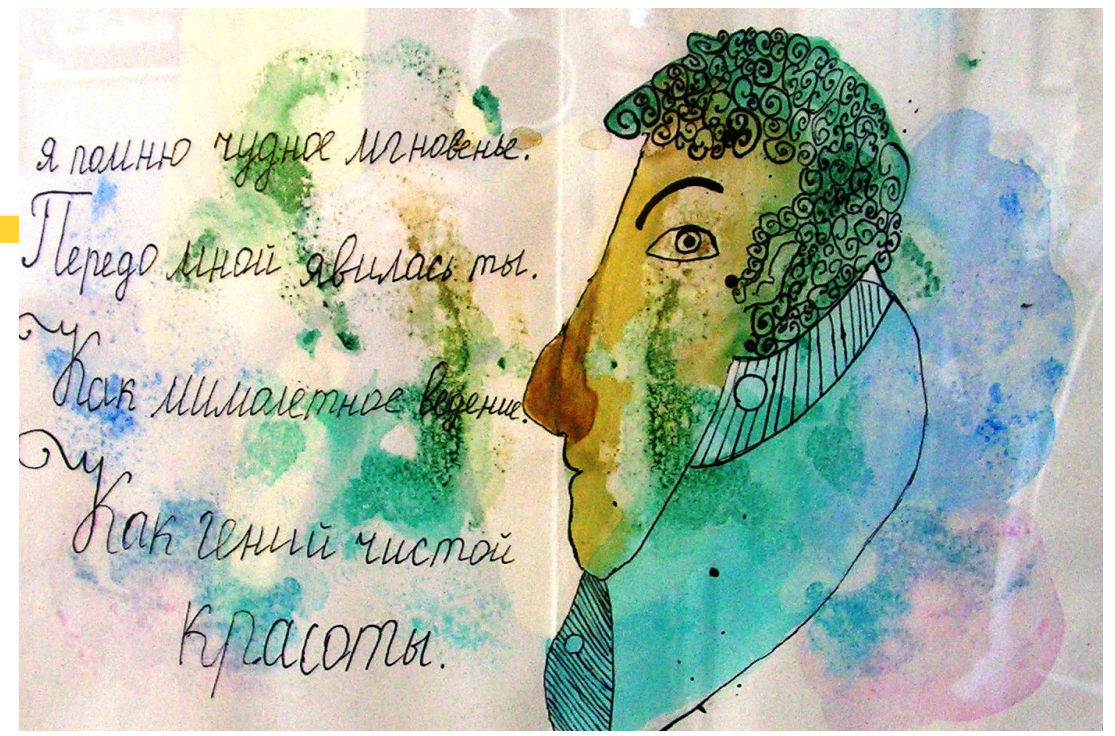 я помню чудное мгновенье.
Передо мной явилась ты.
Как мимолетное ведение.
Как гений чистой
красоты.